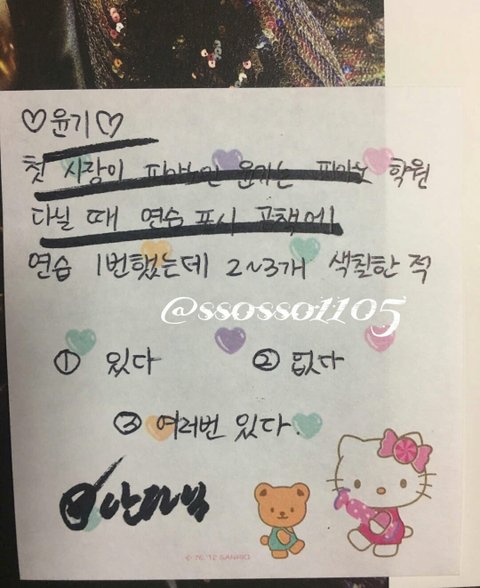 ♡윤기♡
첫 사랑이 피아노인 윤기는 피아노 학원
다닐 때 연습 표시 공책에
연습 1번했는데 2~3개 색칠한 적
@ssosso1105
① 있다 ② 없다
③ 여러번 있다.
© '76, '12 SANRIO